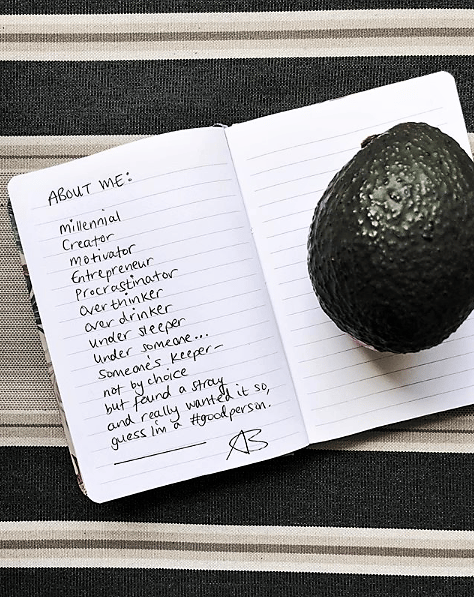 ABOUT ME:
millennial
Creator
motivator
Entrepreneur
Procrastinator
over thinker
over drinker
under sleeper
under someone...
Someone's keeper-
not by choice
but found a stray
and really wanted it so,
guess im a #goodperson.
AB